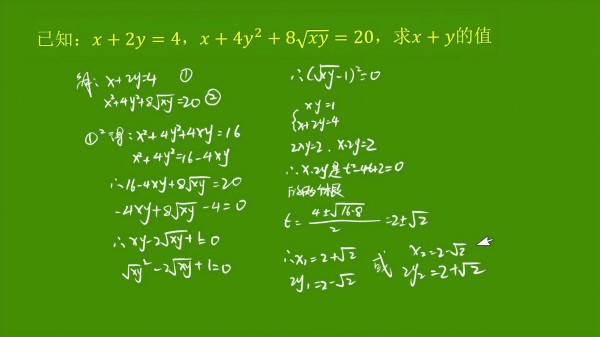 已知：x + 2y = 4，x + 4y² + 8√xy = 20，求x + y的值
解: x+2y=4 ①
x²+4y²+8√xy=20 ②
①²得: x²+4y²+4xy=16
x²+4y²=16-4xy
∴16-4xy+8√xy=20
-4xy+8√xy-4=0
∴xy-2√xy+1=0
√xy²-2√xy+1=0
∴(√xy-1)²=0
{xy=1
x+2y=4
2xy=2, x·2y=2
∴x·2y是t²-4t+2=0
t=(4±√16-8)/2=2±√2
∴x₁=2+√2 或 x₂=2-√2
2y₁=2-√2 2y₂=2+√2